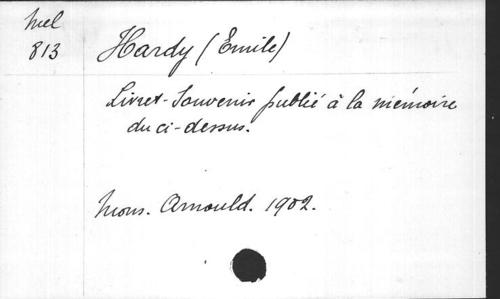 Mel
813
Hardy (Emile)
Livret-Souvenir publié à la mémoire
du ci-dessus.
Mons. Arnould. 1902.